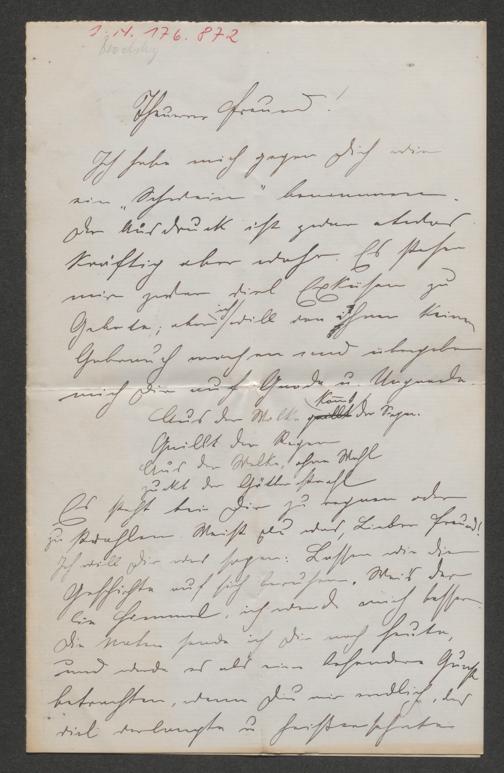 I. N. 176.872
Brodsky
Theurer Freund!
Ich habe mich gegen Dich wie
ein „Schwein“ benommen.
Der Ausdruck ist zwar etwas
kräftig aber wahr. Es stehen
mir zwar viel Exküsen zu
Gebote; aber ich will von ihnen keinen
Gebrauch machen und übergebe
mich Dir auf Gnade u Ungnade.
Aus der Wolke quillt kommt der Segen.
Quillt der Regen
Aus der Wolke, ohne Wahl
zuckt der Strahl
Es steht bei Dir zu regnen oder
zu strahlen. Weißt Du was, Lieber Freund!
Ich will Dir was sagen: Lassen wir die
Geschichte auf sich beruhen. Weis der
liebe Himmel, ich werde mich bessern.
Die Noten sende ich Dir noch heute,
und werde es als eine besondere Gunst
betrachten, wenn Du mir endlich, das
viel verlangte u heißersehnte